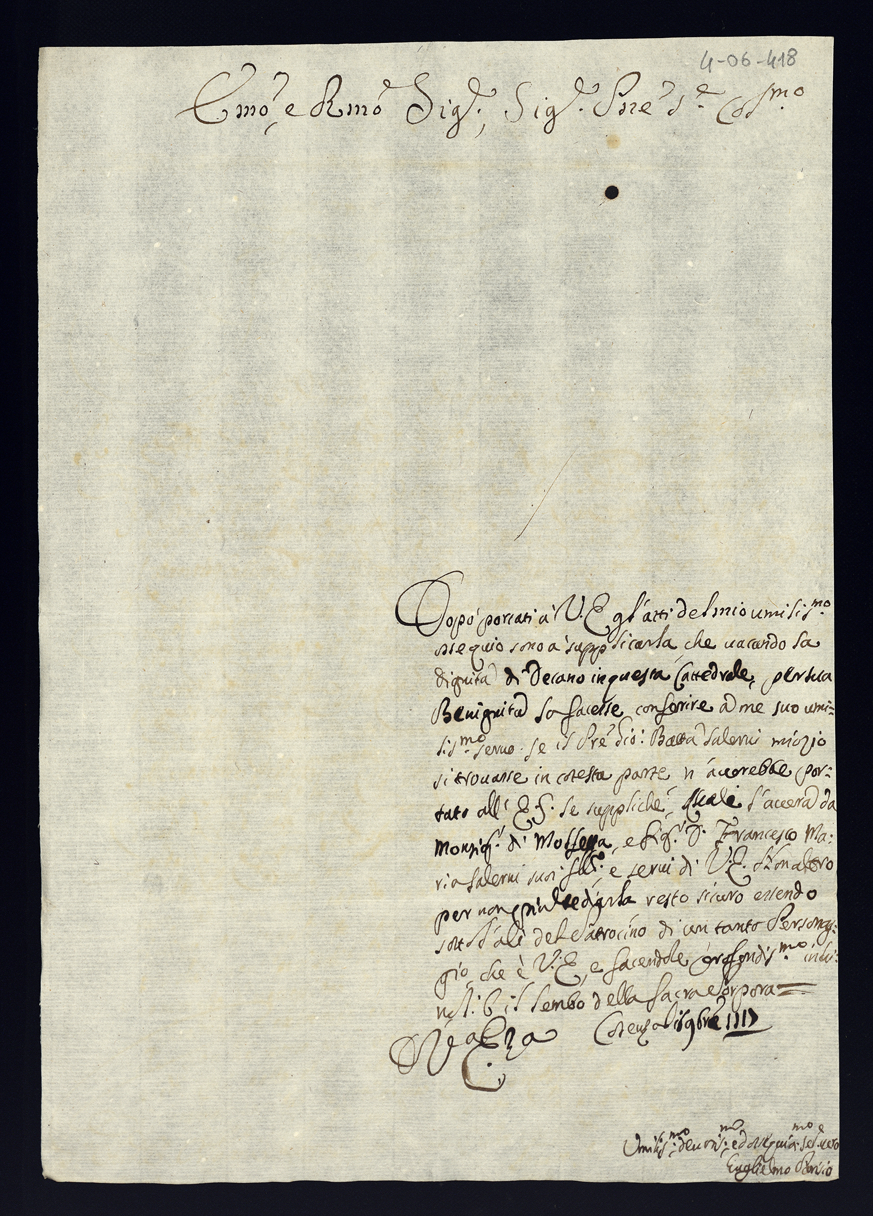 4-06-418
Emo, e Rmo Sig.r, Sig.r Pne
Dopo portati à V.E gl'atti del mio umilis.mo
ossequio sono à supplicarla, che vacando la
dignità di Decano in questa Cattedrale, per sua
Benignità la facesse conferire à me suo umi=
lis.mo servo. se il Salerni mio zio
si trovasse in cotesta parte n'averebbe por=
tato all' E.S. le suppliche, quali l'averà da
Monsig.r di , e Sig.r D. Francesco Ma:
ria Salerni suoi , e servi di V.E.
per non resto sicuro essendo
sotto l'ali del Patrocino di un tanto Personag:
gio, che è V.E, e facendole profondis.mo inchi:
no, li b il lembo della Sacra Porpora=
Di V.a E.za Cosenza li 16 9bre 1717
Umilis.mo devotis.mo ed osequias.mo servo
Guglielmo